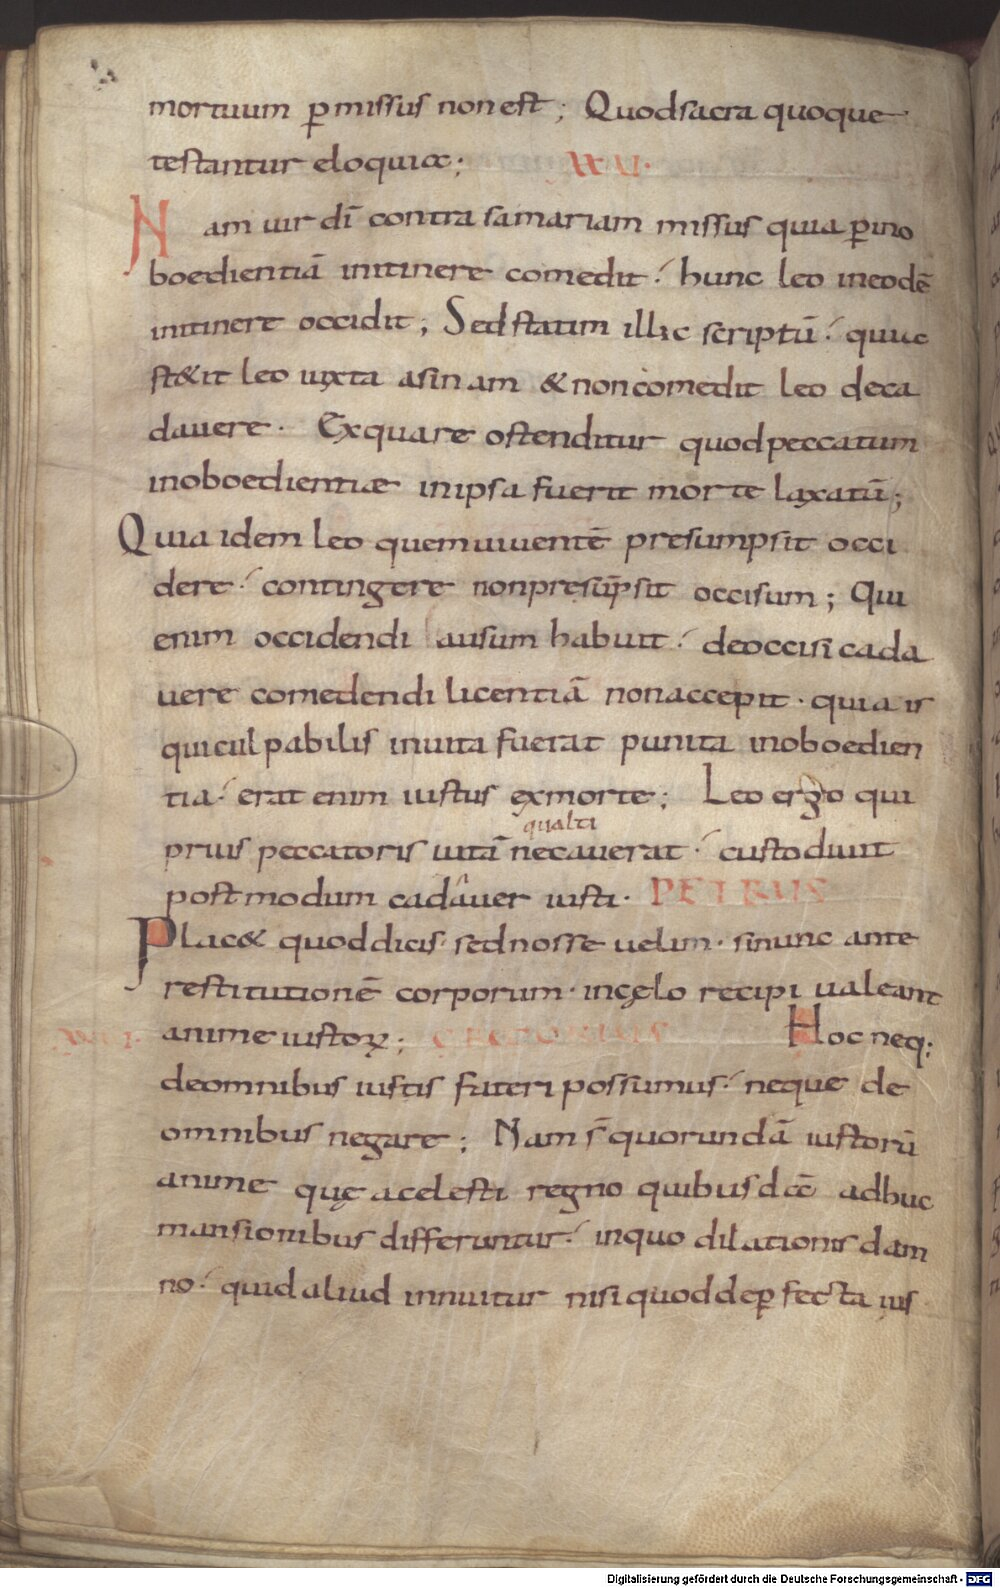 mortuum ꝑmissus non est; Quod sacra quoque
testantur eloquia; XXV.
Nam uir dī contra samariam missus quia ꝑ ino
boedientiā in itinere comedit; hunc leo in eodē
in itinere occidit; Sed statim illic scriptū; quia
stetit leo iuxta asinam & non comedit leo de ca
dauere. Ex qua re ostenditur quod peccatum
inoboedientiae in ipsa fuerit morte laxatū;
Quia idem leo quem uiuentē presumpsit occi
dere; contingere non presūpsit occisum; Qui
enim occidendi ausum habuit; de occisi cada
uere comedendi licentiā non accepit. quia is
qui culpabilis in uita fuerat punita inoboedien
tia; erat enim iustus ex morte; Leo ergo qui
prius peccatoris uitā necauerat; custodiuit
postmodum cadauer iusti. PETRUS
Plac& quod dicis. sed nosse uelim. si nunc ante
restitutionē corporum. in cęlo recipi ualeant
anime iustoꝝ; GREGORIUS Hoc neq;
de omnibus iustis fateri possumus; neque de
omnibus negare; Nam s̄ quorundā iustorū
anime quę a celesti regno quibusdā adhuc
mansionibus differuntur; in quo dilationis dam
no; quid aliud innuitur nisi quod de ꝑfecta ius
Digitalisierung gefördert durch die Deutsche Forschungsgemeinschaft - DFG